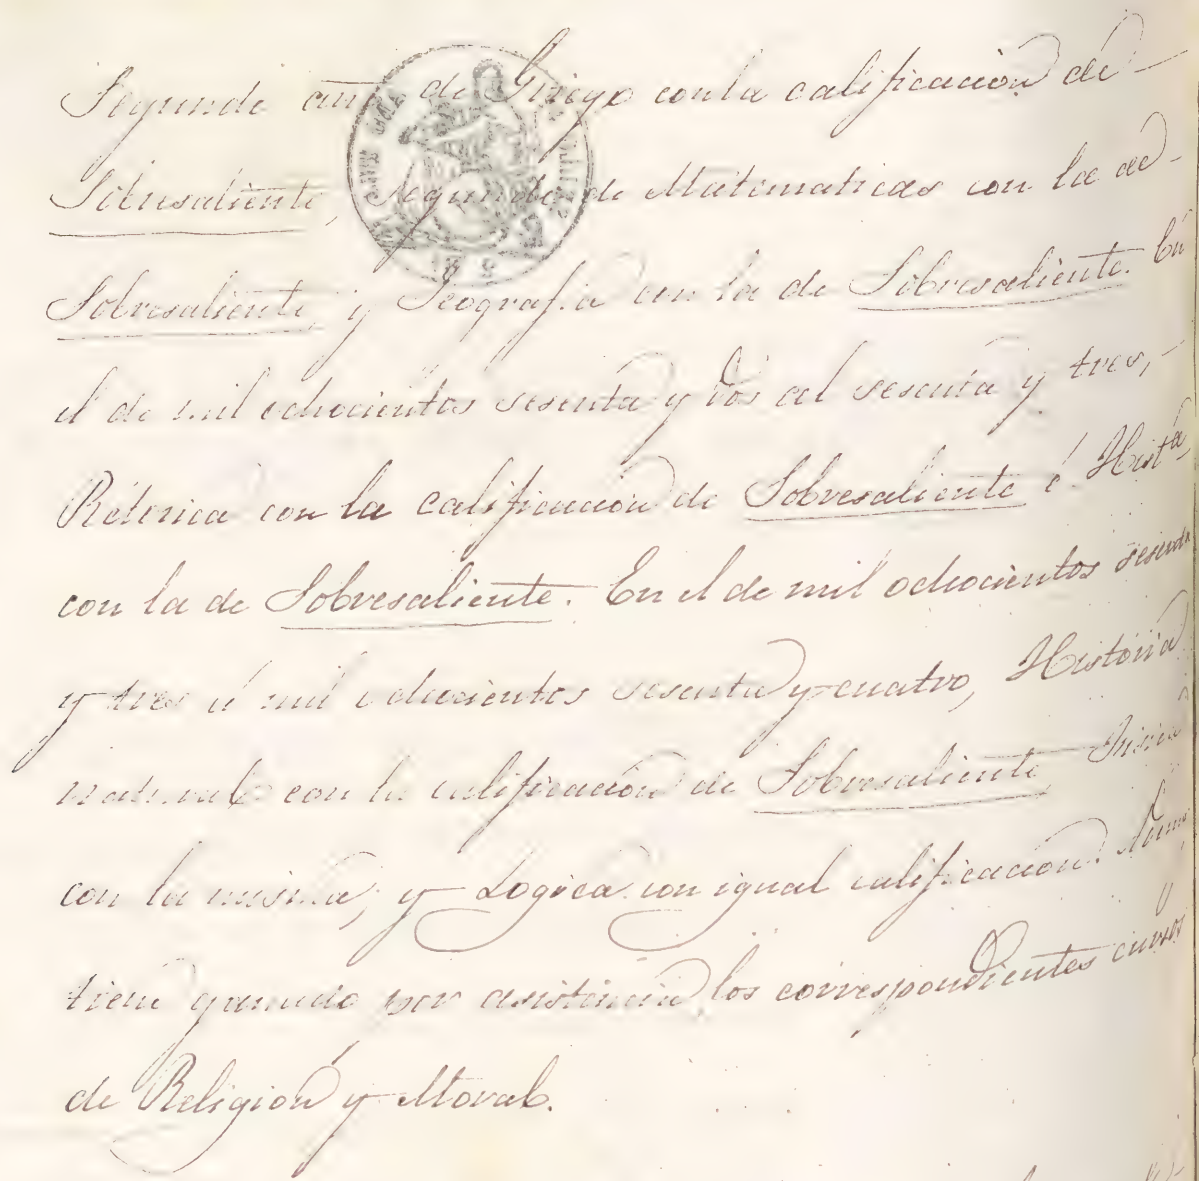 Segundo año de Griego con la calificacion de
Sobresaliente, segundo de Matematicas con la de
Sobresaliente y Geografia con la de Sobresaliente. En
el de mil ochocientos sesenta y dos al sesenta y tres,
Rétorica con la calificacion de Sobresaliente é Histª,
con la de Sobresaliente. En el de mil ochocientos sesenta
y tres á mil ochocientos sesenta y cuatro, Historia
natural con la calificacion de Sobresaliente Fisica
con la misma, y Logica con igual calificacion.
tiene ganado por asistencia los correspondientes cursos
de Religion y Moral.